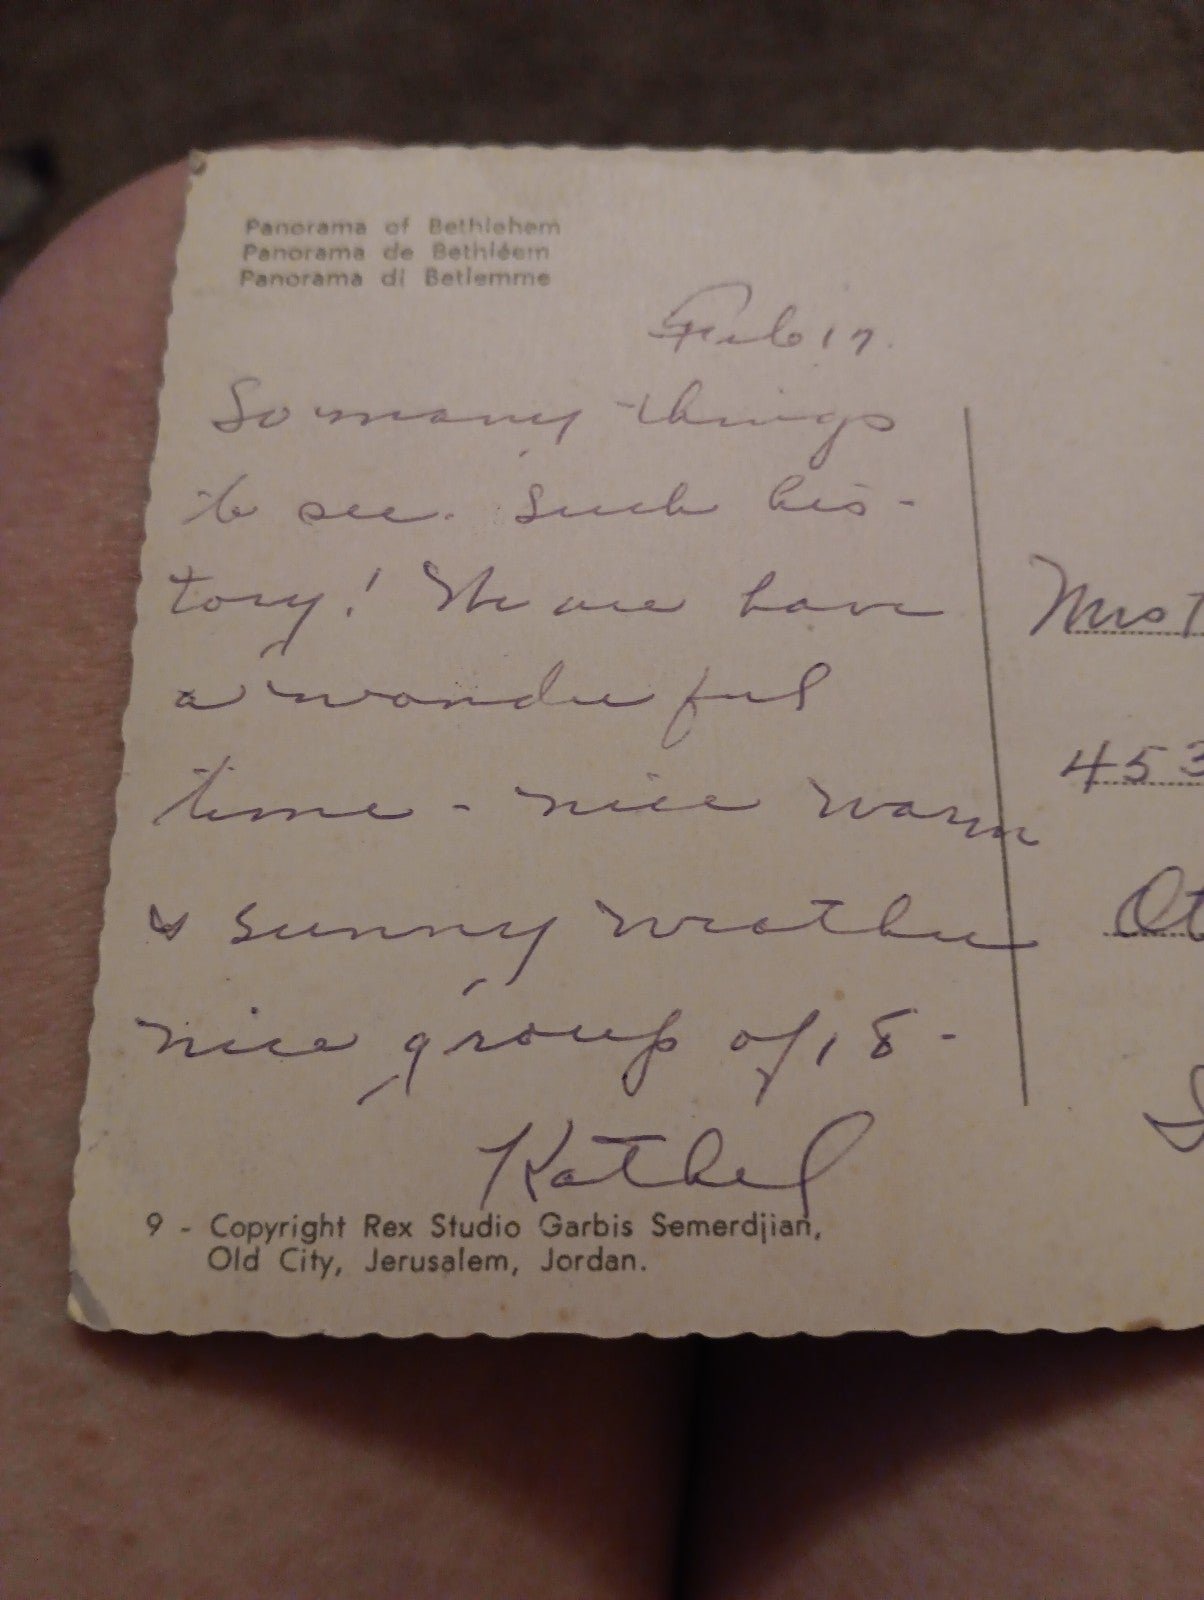 Panorama of Bethlehem
Panorama de Bethléem
Panorama di Betlemme
Feb 17.
So many things
to see. Such his-
tory! We are have
a wonderful
time - nice warm
& sunny weather
nice group of 18 -
Kathel
9 - Copyright Rex Studio Garbis Semerdjian,
Old City, Jerusalem, Jordan.
Mrs
453
Ot